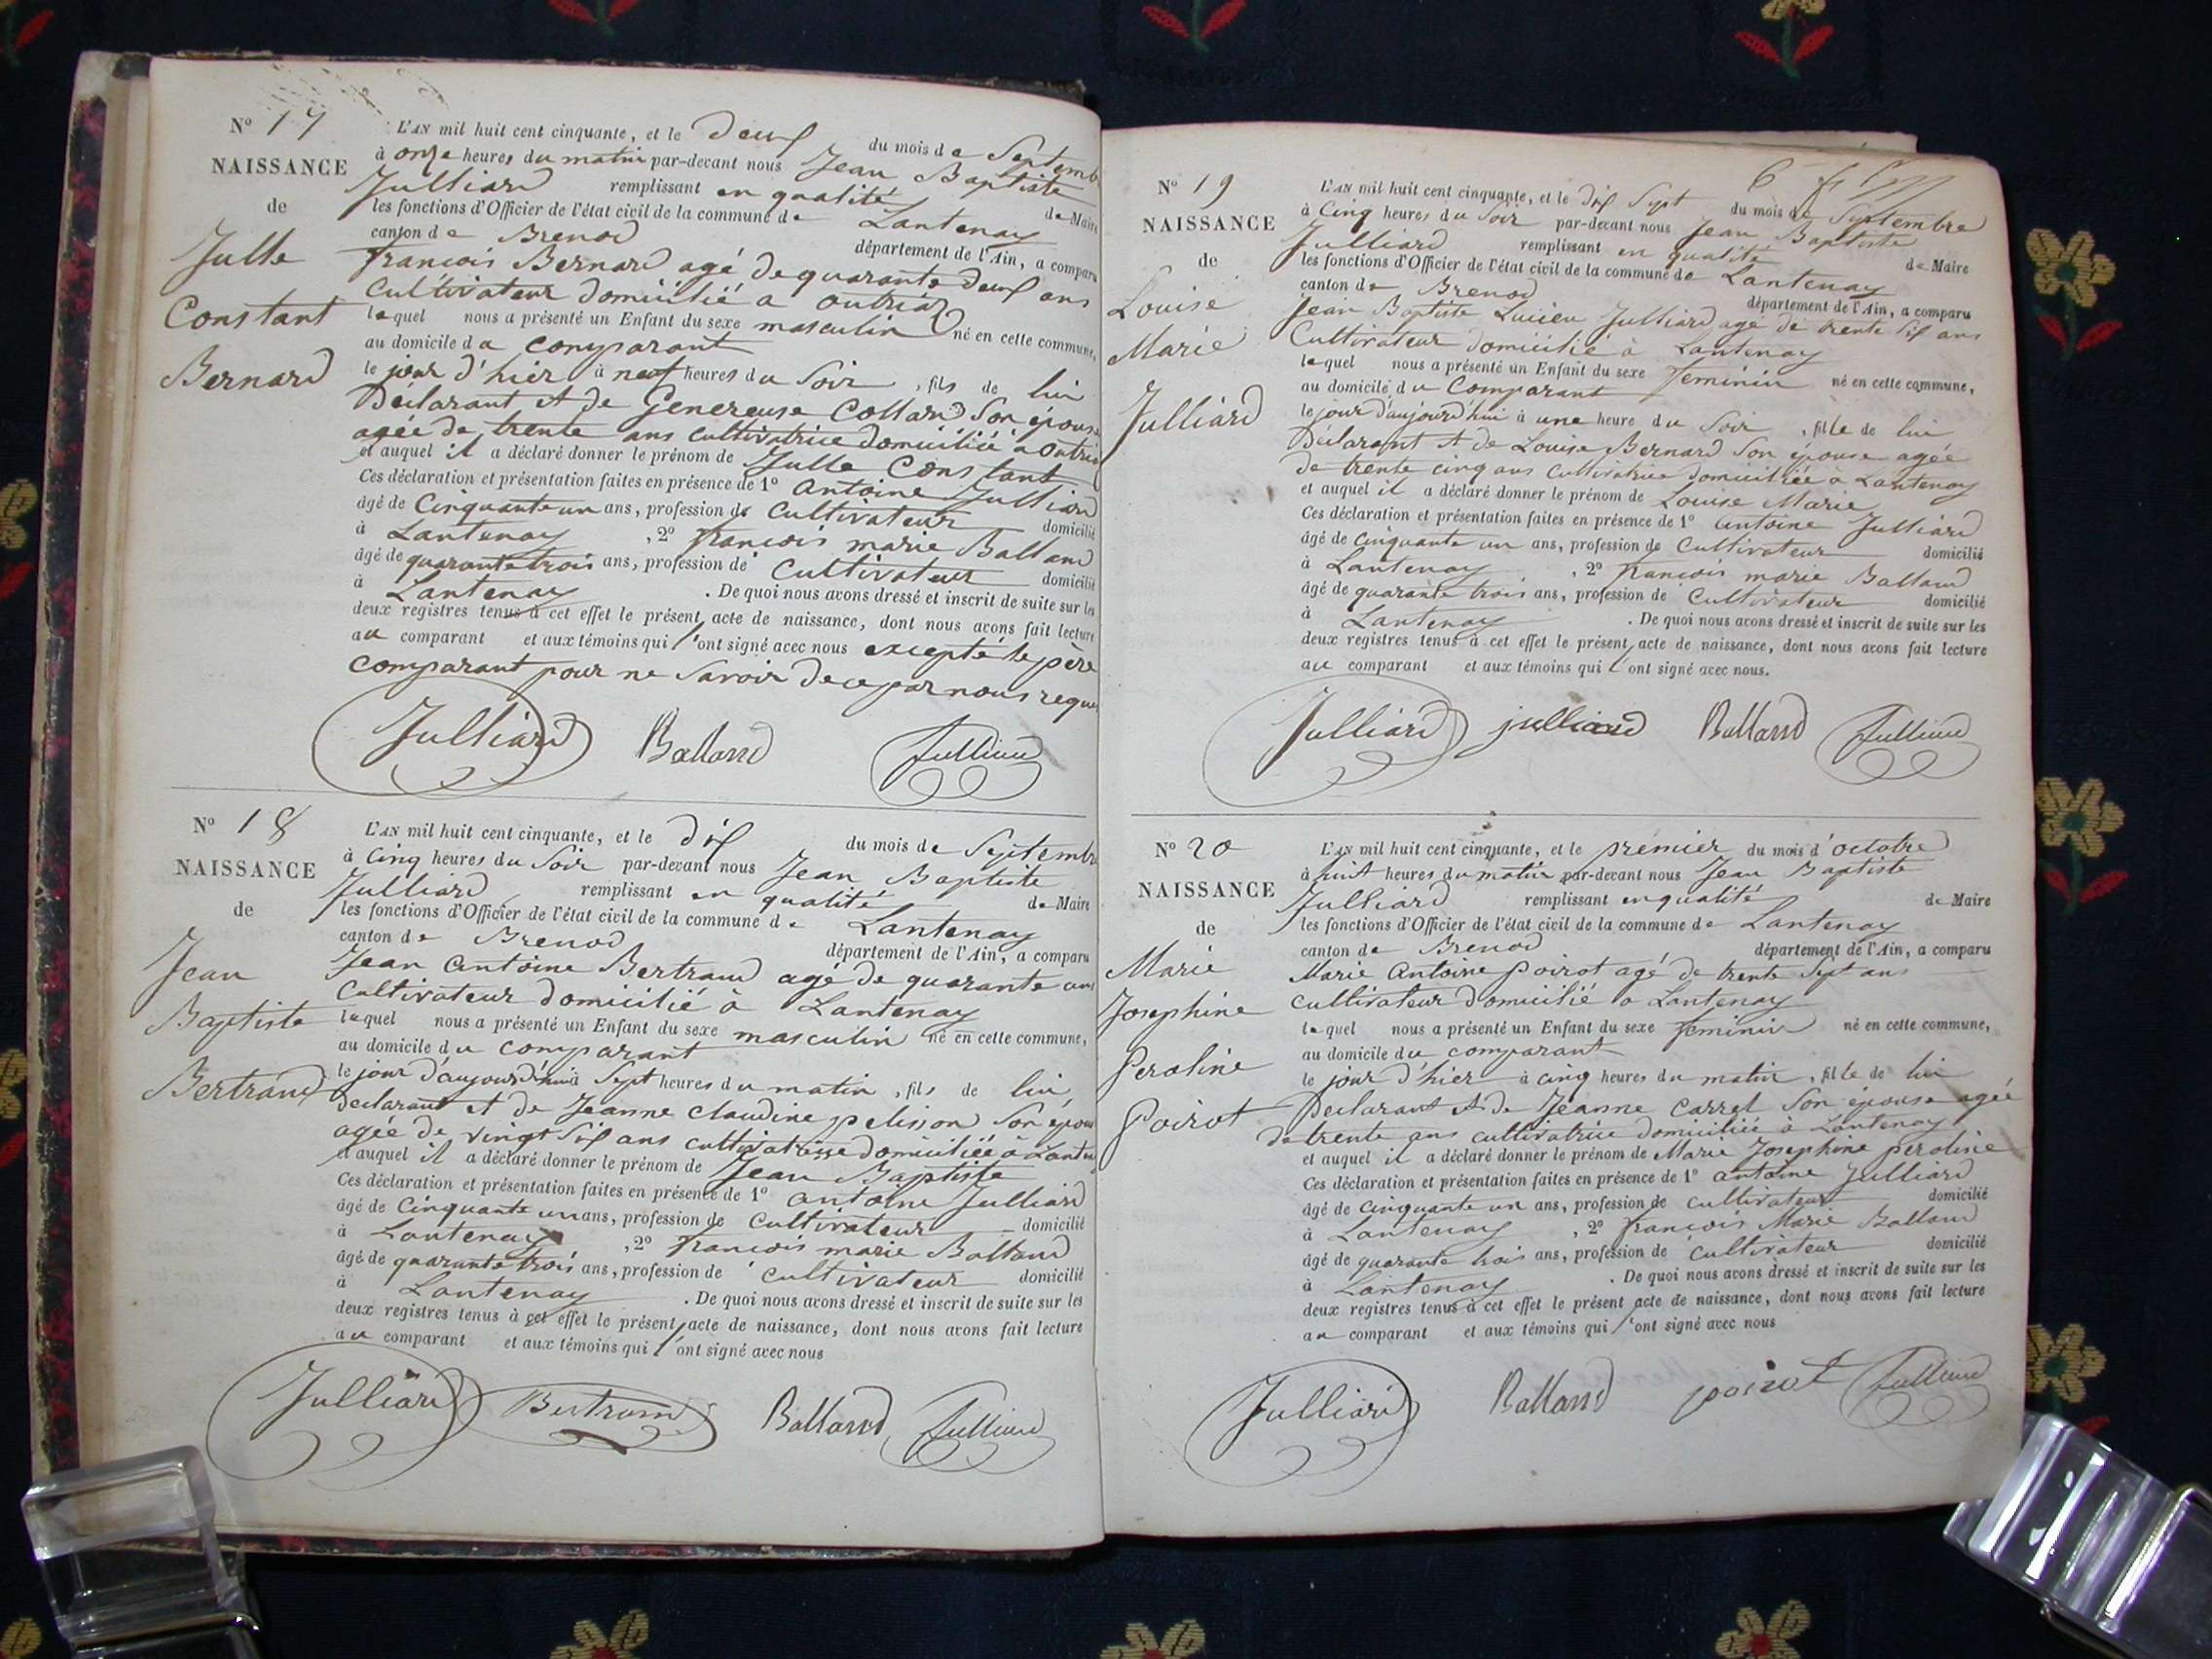 N° 17
NAISSANCE
de
Julle
Constant
Bernard
L'AN mil huit cent cinquante, et le deux du mois de Septemb
à onze heures du matin par-devant nous Jean Baptiste
Julliard remplissant en qualité de Maire
les fonctions d'Officier de l'état civil de la commune de Lantenay
canton de Brenod département de l'Ain, a comparu
françois Bernard agé de quarante deux ans
Cultivateur domicilié a outriaz
lequel nous a présenté un Enfant du sexe masculin né en cette commune,
au domicile du comparant
le jour d'hier à neuf heures du Soir, fils de lui
Déclarant et de Genereuse Colland Son épouse
agée de trente ans cultivatrice domiciliée a Outria
et auquel il a déclaré donner le prénom de Julle Constant
Ces déclaration et présentation faites en présence de 1° antoine Julliard
âgé de Cinquante un ans, profession de Cultivateur domicilié
à Lantenay, 2° françois marie Balland
âgé de quarante trois ans, profession de Cultivateur domicilié
à Lantenay. De quoi nous avons dressé et inscrit de suite sur les
deux registres tenus à cet effet le présent acte de naissance, dont nous avons fait lecture
au comparant et aux témoins qui l'ont signé avec nous excepté le père
comparant pour ne Savoir de ce par nous requi
Julliard Balland Julliard
N° 18
NAISSANCE
de
Jean
Baptiste
Bertrand
L'AN mil huit cent cinquante, et le dix du mois de Septembr
à Cinq heures du Soir par-devant nous Jean Baptiste
Julliard remplissant en qualité de Maire
les fonctions d'Officier de l'état civil de la commune de Lantenay
canton de Brenod département de l'Ain, a comparu
Jean antoine Bertrand agé de quarante ans
Cultivateur domicilié à Lantenay
lequel nous a présenté un Enfant du sexe masculin né en cette commune,
au domicile du comparant
le jour d'aujourd'hui à Sept heures du matin, fils de lui
déclarant et de Jeanne Claudine pelisson Son épous
agée de vingt Six ans cultivatrice domiciliée à Lante
et auquel il a déclaré donner le prénom de Jean Baptiste
Ces déclaration et présentation faites en présence de 1° antoine Julliard
âgé de Cinquante un ans, profession de Cultivateur domicilié
à Lantenay, 2° françois marie Balland
âgé de quarante trois ans, profession de Cultivateur domicilié
à Lantenay. De quoi nous avons dressé et inscrit de suite sur les
deux registres tenus à cet effet le présent acte de naissance, dont nous avons fait lecture
au comparant et aux témoins qui l'ont signé avec nous
Julliard Bertrand Balland Julliard
N° 19
NAISSANCE
de
Louise
Marie
Julliard
6
L'AN mil huit cent cinquante, et le dix Sept du mois de Septembre
à Cinq heures du Soir par-devant nous Jean Baptiste
Julliard remplissant en qualité de Maire
les fonctions d'Officier de l'état civil de la commune de Lantenay
canton de Brenod département de l'Ain, a comparu
Jean Baptiste Lucien Julliard agé de trente Six ans
Cultivateur domicilié à Lantenay
lequel nous a présenté un Enfant du sexe feminin né en cette commune,
au domicile du Comparant
le jour d'aujourd'hui à une heure du Soir, fille de lui
Déclarant et de Louise Bernard Son épouse agée
de trente cinq ans Cultivatrice domiciliée à Lantenay
et auquel il a déclaré donner le prénom de Louise Marie
Ces déclaration et présentation faites en présence de 1° antoine Julliard
âgé de cinquante un ans, profession de Cultivateur domicilié
à Lantenay, 2° françois marie Balland
âgé de quarante trois ans, profession de Cultivateur domicilié
à Lantenay. De quoi nous avons dressé et inscrit de suite sur les
deux registres tenus à cet effet le présent acte de naissance, dont nous avons fait lecture
au comparant et aux témoins qui l'ont signé avec nous.
Julliard julliard Balland Julliard
N° 20
NAISSANCE
de
Marie
Josephine
Peroline
Poirot
L'AN mil huit cent cinquante, et le premier du mois d'octobre
à huit heures du matin par-devant nous Jean Baptiste
Julliard remplissant en qualité de Maire
les fonctions d'Officier de l'état civil de la commune de Lantenay
canton de Brenod département de l'Ain, a comparu
Marie Antoine Poirot agé de trente Sept ans
cultivateur domicilié a Lantenay
lequel nous a présenté un Enfant du sexe feminin né en cette commune,
au domicile du comparant
le jour d'hier à cinq heures du matin, fille de lui
Déclarant et de Jeanne Carrel Son épouse agée
de trente ans cultivatrice domiciliée a Lantenay
et auquel il a déclaré donner le prénom de Marie Josephine peroline
Ces déclaration et présentation faites en présence de 1° antoine Julliard
âgé de cinquante un ans, profession de cultivateur domicilié
à Lantenay, 2° françois Marie Balland
âgé de quarante trois ans, profession de cultivateur domicilié
à Lantenay. De quoi nous avons dressé et inscrit de suite sur les
deux registres tenus à cet effet le présent acte de naissance, dont nous avons fait lecture
au comparant et aux témoins qui l'ont signé avec nous
Julliard Balland poirot Julliard